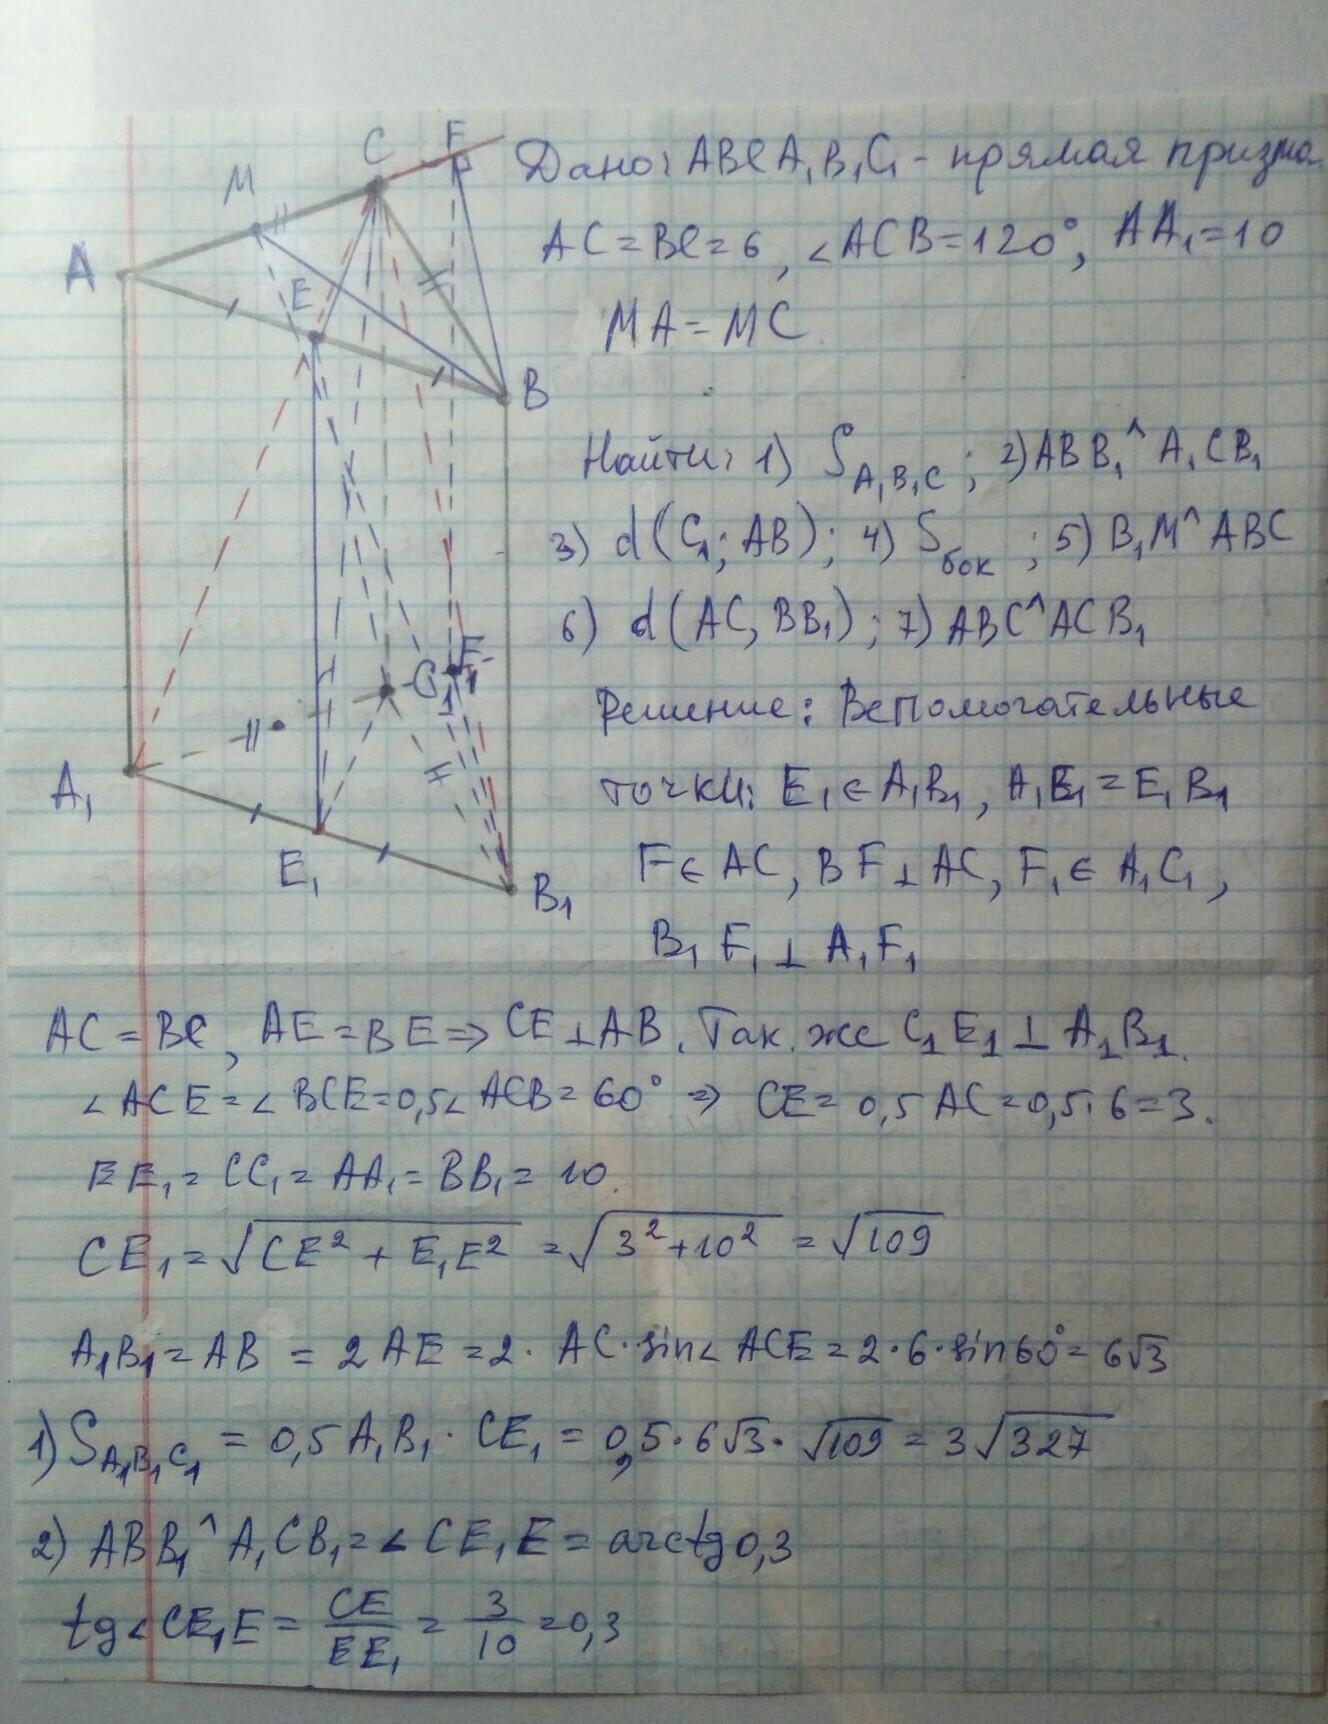 C F
M
A
E
B
C₁ F₁
A₁
E₁
B₁
Дано: ABCA₁B₁C₁ - прямая призма.
AC = BC = 6, ∠ACB = 120°, AA₁ = 10
MA = MC
Найти: 1) S A₁B₁C ; 2) ABB₁ ^ A₁CB₁
3) d(C₁; AB); 4) Sбок ; 5) B₁M ^ ABC
6) d(AC, BB₁); 7) ABC ^ ACB₁
Решение: Вспомогательные
точки: E₁ ∈ A₁B₁, A₁E₁ = E₁B₁
F ∈ AC, BF ⊥ AC, F₁ ∈ A₁C₁,
B₁F₁ ⊥ A₁F₁
AC = BC, AE = BE ⇒ CE ⊥ AB. Так же C₁E₁ ⊥ A₁B₁.
∠ACE = ∠BCE = 0,5∠ACB = 60° ⇒ CE = 0,5AC = 0,5·6 = 3.
EE₁ = CC₁ = AA₁ = BB₁ = 10.
CE₁ = √(CE² + E₁E²) = √(3² + 10²) = √109
A₁B₁ = AB = 2AE = 2·AC·sin∠ACE = 2·6·sin60° = 6√3
1) S A₁B₁C₁ = 0,5A₁B₁·CE₁ = 0,5·6√3·√109 = 3√327
2) ABB₁ ^ A₁CB₁ = ∠CE₁E = arctg0,3
tg∠CE₁E = CE/EE₁ = 3/10 = 0,3